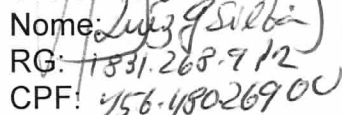 Nome: Luiz g Silva
RG: 1831.268.9 12
CPF: 456.480269 00